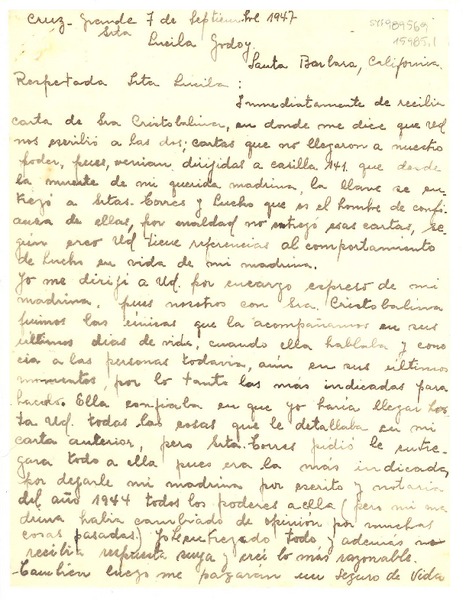 Cruz-Grande 7 de Septiembre 1947
Srta
Lucila Godoy.
Santa Barbara, California.
Respetada Srta Lucila :
Inmediatamente de recibir
carta de Sra Cristobalina, en donde me dice que Ud
nos escribió a las dos; cartas que no llegaron a nuestro
poder, pues, venian dirijidas a casilla 141. que desde
la muerte de mi querida madrina, la llave se en-
tregó a Srtas. Torres y Lucho que es el hombre de confi
anza de ellas, por maldad no entregó esas cartas, se-
gún creo Ud tiene referencias al comportamiento
de Lucho en vida de mi madrina.
Yo me dirijí a Ud. por encargo expreso de mi
madrina, pues nosotros con Sra. Cristobalina
fuimos las únicas que la acompañamos en sus
últimos dias de vida, cuando ella hablaba y cono
cia a las personas todavia, aún en sus últimos
momentos, por lo tanto las más indicadas para
hacerlo. Ella confiaba en que yo haria llegar has
ta Ud. todas las cosas que le detallaba en mi
carta anterior, pero Srta. Torres pidió le entre-
gara todo a ella pues era la más indicada,
por dejarle mi madrina por escrito y notaria
del año 1944 todos los poderes a ella (pero mi ma
drina habia cambiado de opinión por muchas
cosas pasadas) Yo le entregado todo y además no
recibia respuesta suya y crei lo más razonable.
Tambien luego me pagarán un seguro de vida